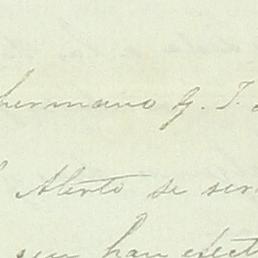 hermano G. T.
Alerto se ser
seu han efect